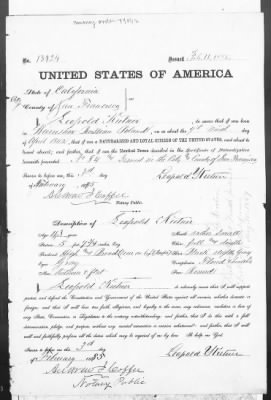 No. 13924 Issued Feb 11
UNITED STATES OF AMERICA.
State of California
City
County of San Francisco
I Leopold
, do swear that I was born
in Austrian Poland, on or about the 9th day of
April 1842, that I am a NATURALIZED AND LOYAL CITIZEN OF THE UNITED STATES, and about to
travel abroad; and further, that I am the Identical Person described in the Certificate of Naturalization
herewith presented. No 84 Issued in the City & County of San Francisco
Sworn to before me, this 3rd day
of February 1885 Leopold
Notary Public.
Description of Leopold
Age: 43 years Mouth: rather small
Stature: 5 feet inches, Eng. Chin: full
Forehead: High and Broad Hair: Black slightly Gray
Eyes: Gray Complexion:
Nose: Face: Round
I, Leopold do solemnly swear that I will support,
protect and defend the Constitution and Government of the United States against all enemies, whether domestic or
foreign; and that I will bear true faith, allegiance, and loyalty to the same, any ordinance, resolution or law of
any State, Convention or Legislature to the contrary notwithstanding; and further, that I do this with a full
determination, pledge, and purpose, without any mental reservation or evasion whatsoever; and further, that I will
well and faithfully perform all the duties which may be required of me by law. So help me God.
Sworn to before me, this 3rd day
of February 1885 Leopold
Notary Public